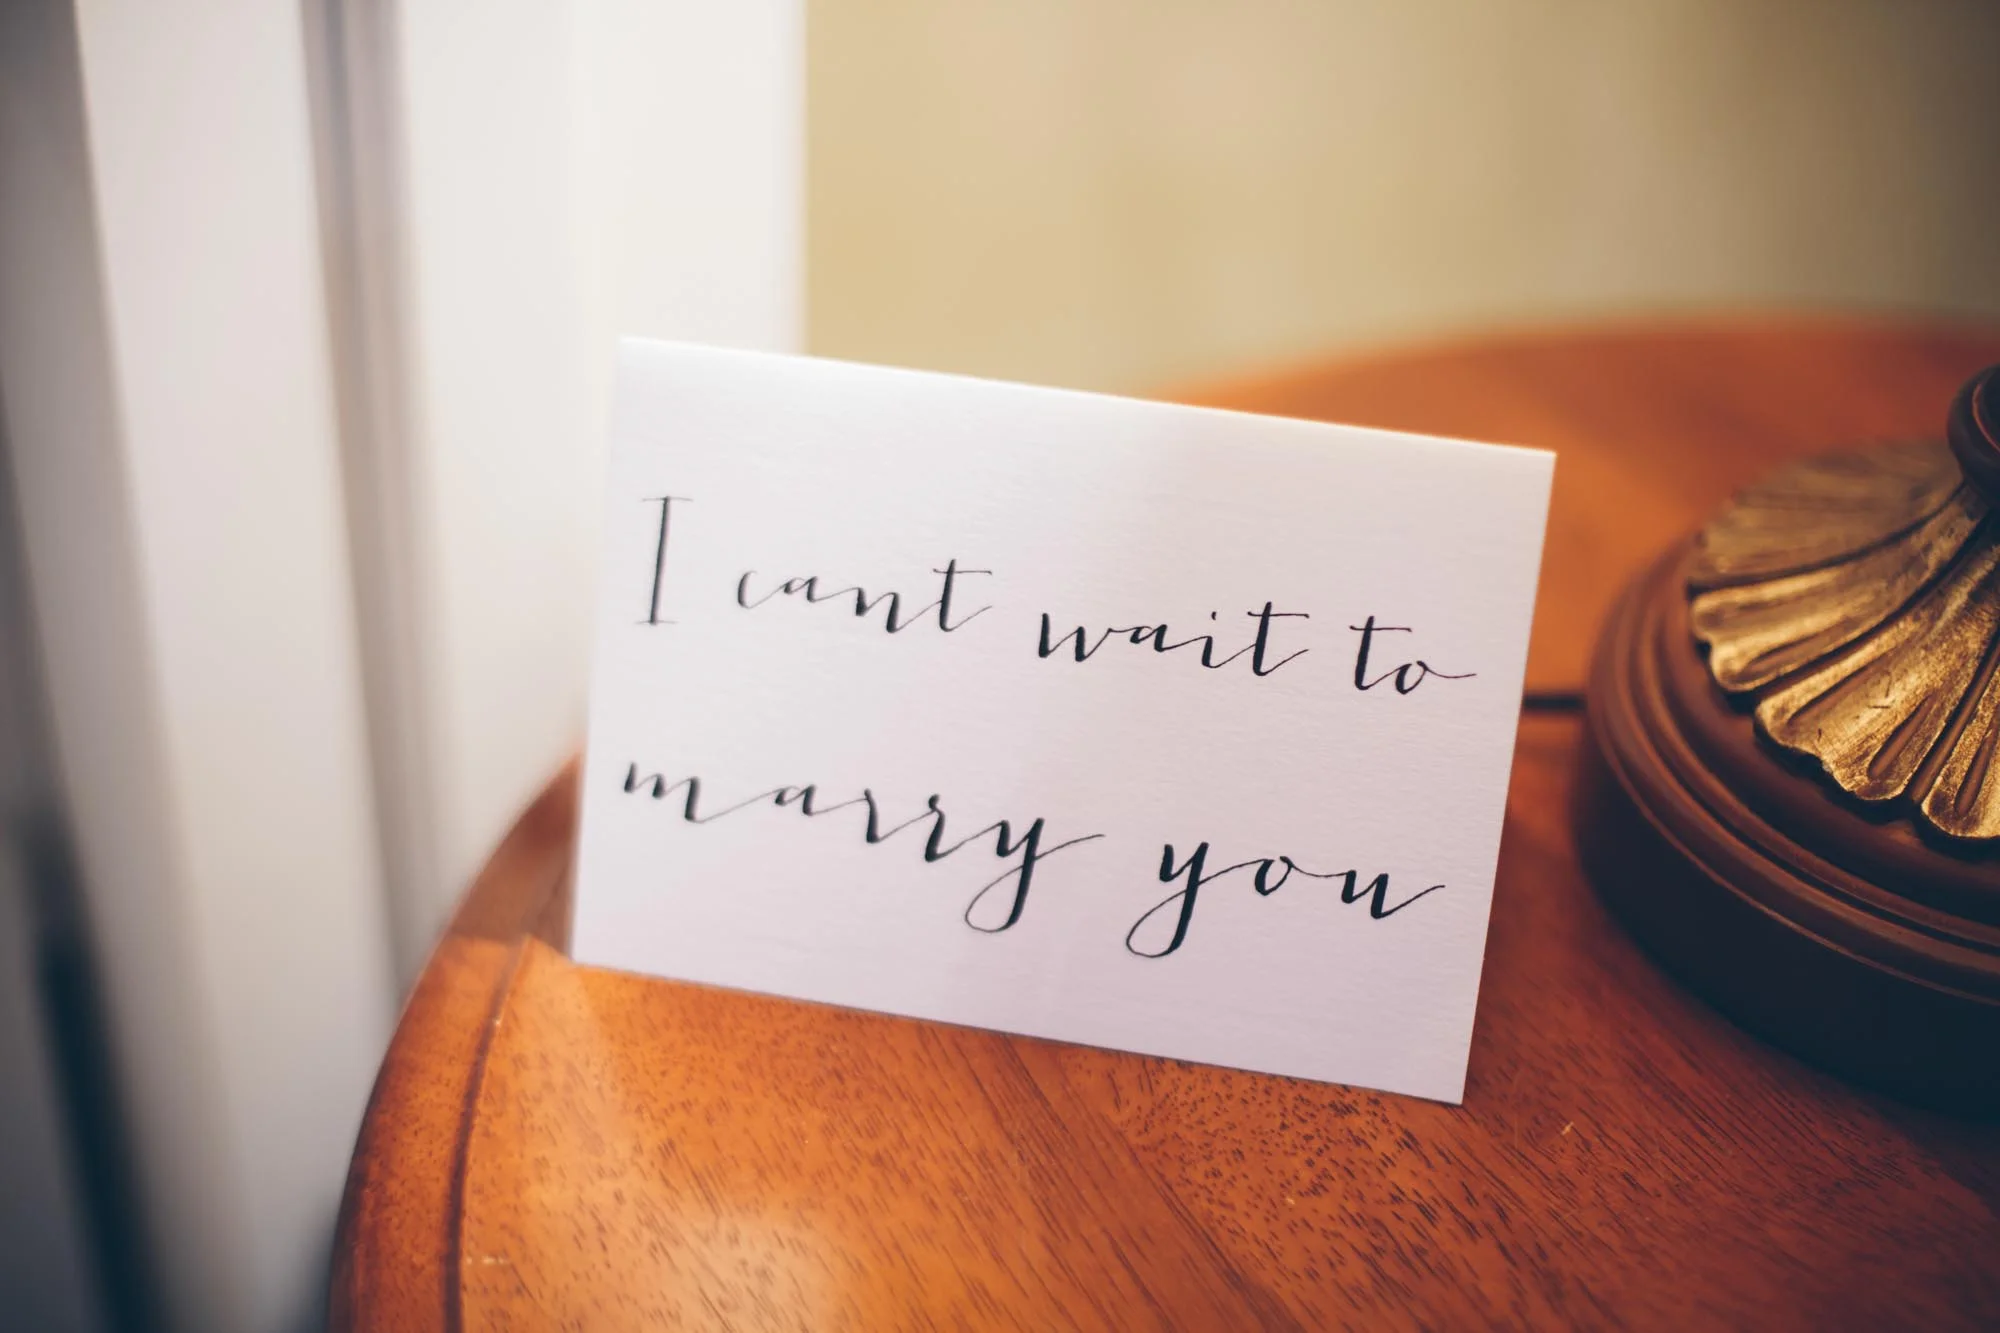 I cant wait to
marry you